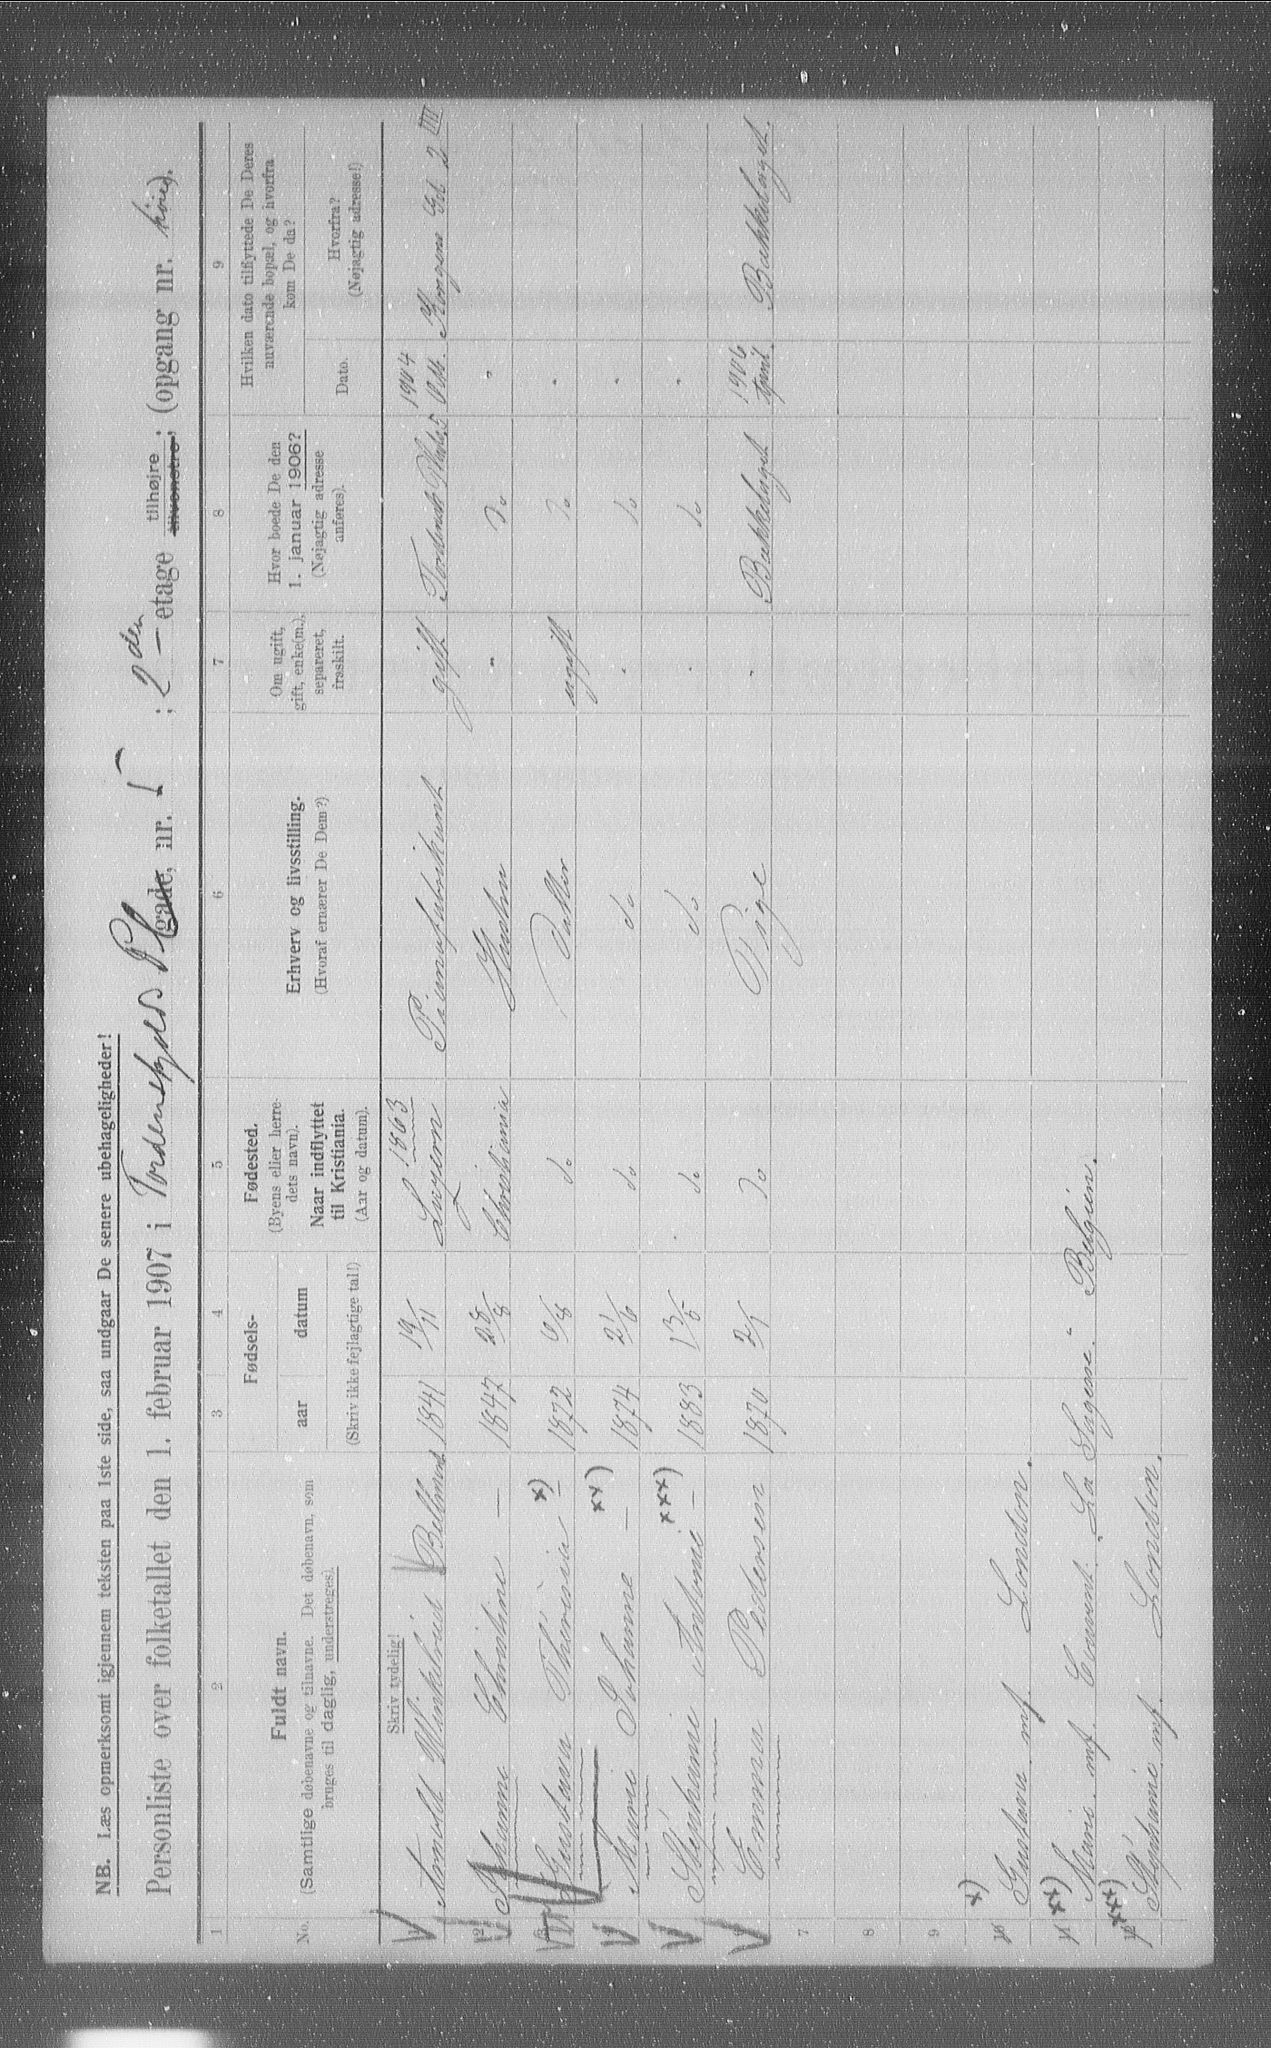 NB. Læs opmerksomt igjennem teksten paa 1ste side, saa undgaar De senere ubehageligheder!
Personliste over folketallet den 1. februar 1907 i Tordenskjolds Pl gade, nr. 5; 2den etage tilhøjre tilvenstre; (opgang nr.
1 2 3 4 5 6 7 8 9
No.
Fuldt navn.
(Samtlige døbenavne og tilnavne. Det døbenavn, som
bruges til daglig, understreges).
Fødsels-
aar datum
(Skriv ikke fejlagtige tal!)
Fødested.
(Byens eller herre-
dets navn).
Naar indflyttet
til Kristiania.
(Aar og datum).
Erhverv og livsstilling.
(Hvoraf ernærer De Dem?)
Om ugift,
gift, enke(m.),
separeret,
fraskilt.
Hvor boede De den
1. januar 1906?
(Nøjagtig adresse
anføres).
Hvilken dato tilflyttede De Deres
nuværende bopæl, og hvorfra
kom De da?
Dato.
Hvorfra?
(Nøjagtig adresse!)
Skriv tydelig!
1841 19/11 1863 Pianofabrikant gift 1904 Okt. Kongens Gt 2 III
2 Johanne Christine — 1847 28/8 Christiania Hustru " Do "
Gustava Thérèsia x) — 1872 6/8 do Datter ugift Do "
Marie Johanne xx) — 1874 21/6 do do " do "
Stéphanie Antonie xxx) — 1883 13/5 do do " do "
Emma Pedersen 1870 2/1 Do Pige " Bækkelaget 1906 April. Bækkelaget.
7
8
9
x)
10 Gustava mf London.
xx)
11 Marie. mf. Couvent. „La Sagesse." Belgien.
xxx)
12 Stéphanie mf. London.